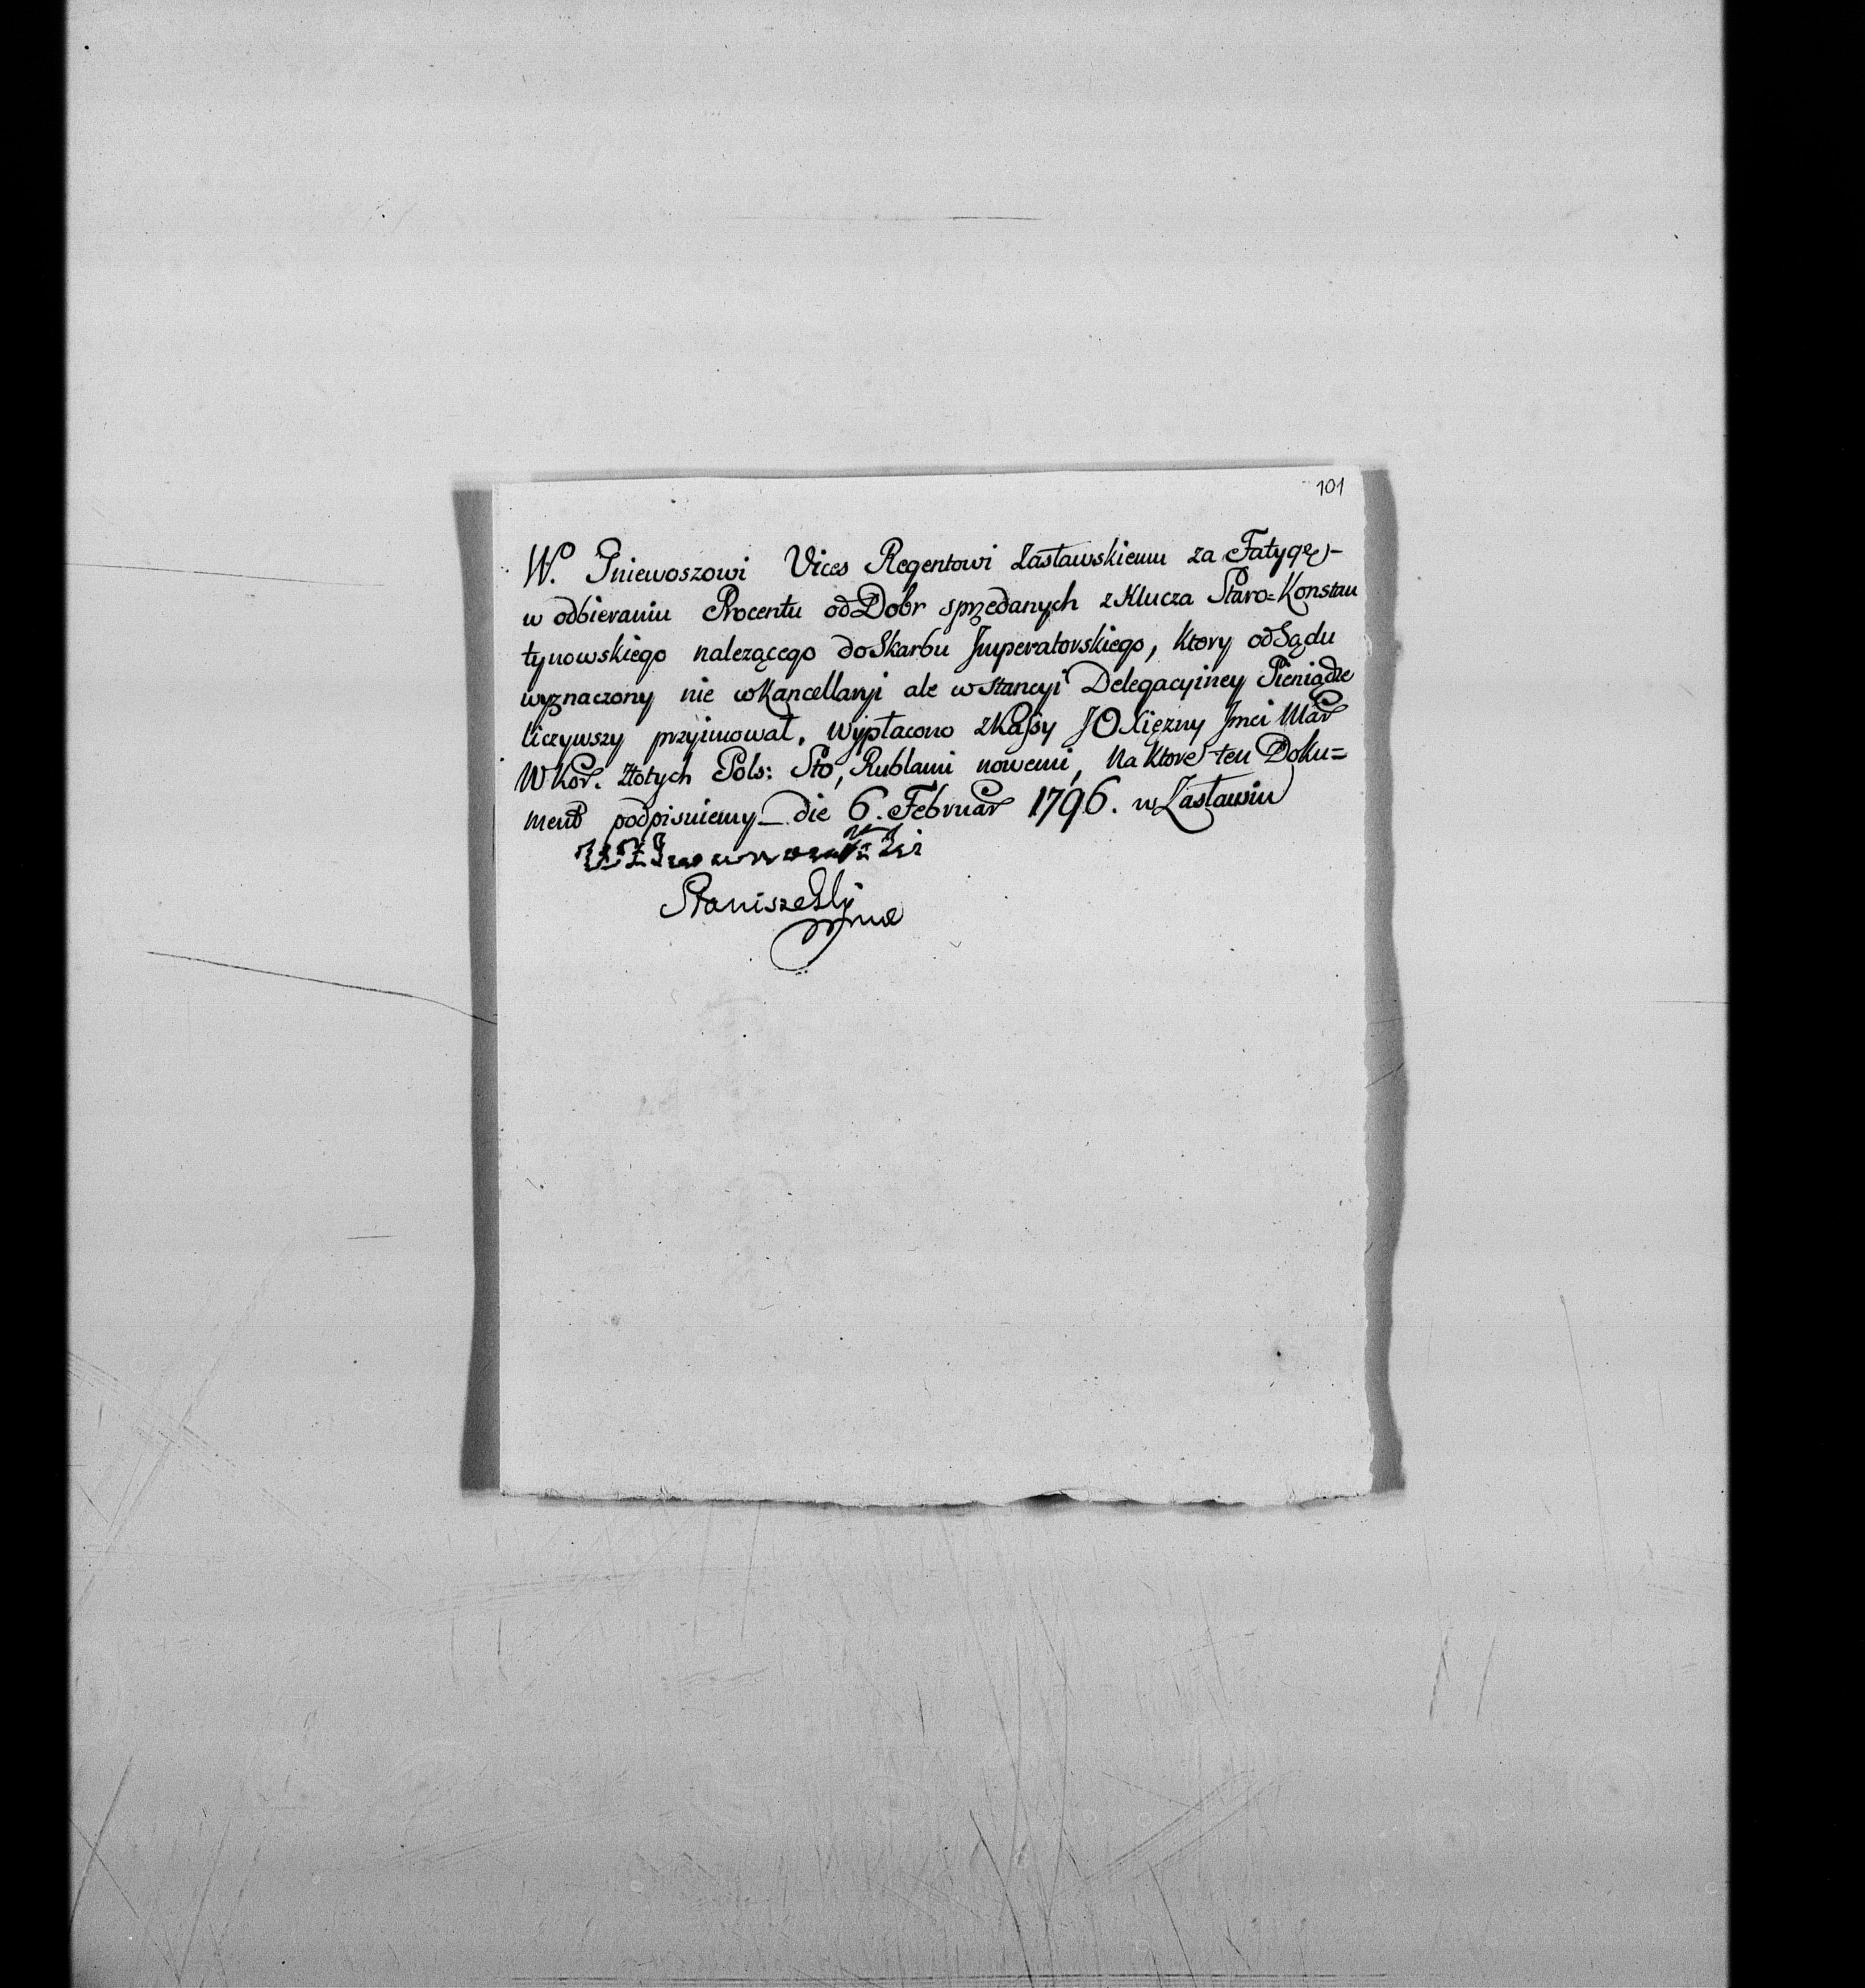 101
W. Gniewoszowi Vices Regentowi Zasławskiemu za Fatygę-
w odbieraniu Procentu od Dobr sprzedanych z Klucza Staro=Konstan
tynowskiego nalezącego do Skarbu Imperatorskiego, ktory od Sądu
wyznaczony nie w Kancellaryi ale w Stancyi Delegacyiney Pieniądze
liczywszy przyimował. wypłacono z Kassy JO Xiężny Jmci Mar
W Kor. złotych Pols: Sto, Rublami nowemi, na ktore ten Doku=
ment podpisuiemy_ die 6. Februar 1796. w Zasławiu
Staniszewski
mp